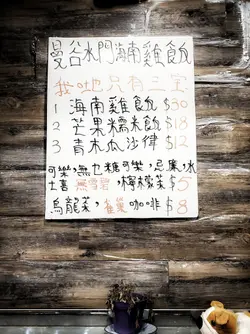 曼谷水門海南雞飯
我哋只有三宝
1 海南雞飯 $30
2 芒果糯米飯 $18
3 青木瓜沙律 $12
可樂,無乜糖可樂,忌廉,水
士啤 無雪碧,檸檬茶 $5
烏龍茶,雀巢咖啡 $8